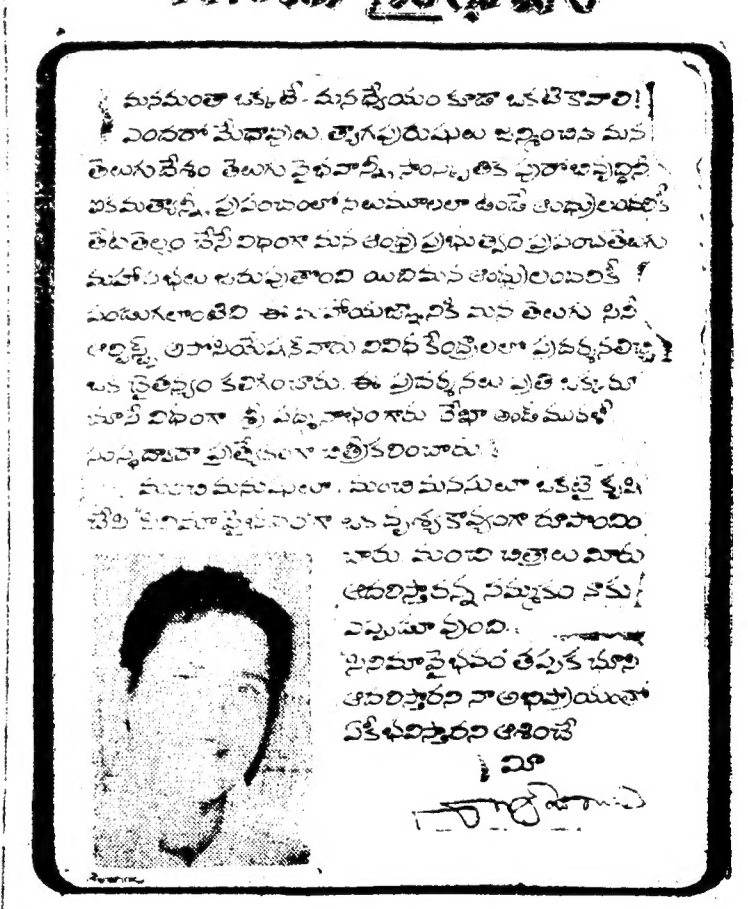 మనమంతా ఒక్కటే - మన ధ్యేయం కూడా ఒకటి కావాలి!
ఎందరో మేధావులు, త్యాగపురుషులు జన్మించిన మన
తెలుగుదేశం తెలుగు వైభవాన్నీ, సాంస్కృతిక పురోభివృద్ధినీ
ఐకమత్యాన్నీ, ప్రపంచంలో నలుమూలలా ఉండే ఆంధ్రులందరికీ
తేటతెల్లం చేసే విధంగా మన ఆంధ్ర ప్రభుత్వం ప్రపంచతెలుగు
మహాసభలు జరుపుతోంది యిది మన ఆంధ్రులందరికీ
పండుగలాంటిది ఈ మహాయజ్ఞానికి మన తెలుగు సినీ
ఆర్టిస్ట్స్ అసోసియేషన్ వారు వివిధ కేంద్రాలలో ప్రదర్శనలిచ్చి
ఒక చైతన్యం కలిగించారు. ఈ ప్రదర్శనలు ప్రతి ఒక్కరూ
చూసే విధంగా శ్రీ పద్మనాభం గారు రేఖా అండ్ మురళీ
సంస్థద్వారా ప్రత్యేకంగా చిత్రీకరించారు.
మంచి మనుషులూ, మంచి మనసులూ ఒకటై కృషి
చేసి "సినిమా వైభవం"గా ఒక దృశ్య కావ్యంగా రూపొందిం
చారు. మంచి చిత్రాలు మీరు
ఆదరిస్తారన్న నమ్మకం నాకు
ఎప్పుడూ వుంది.
సినిమావైభవం తప్పక చూసి
ఆదరిస్తారని నా అభిప్రాయంతో
ఏకీభవిస్తారని ఆశించే
మీ